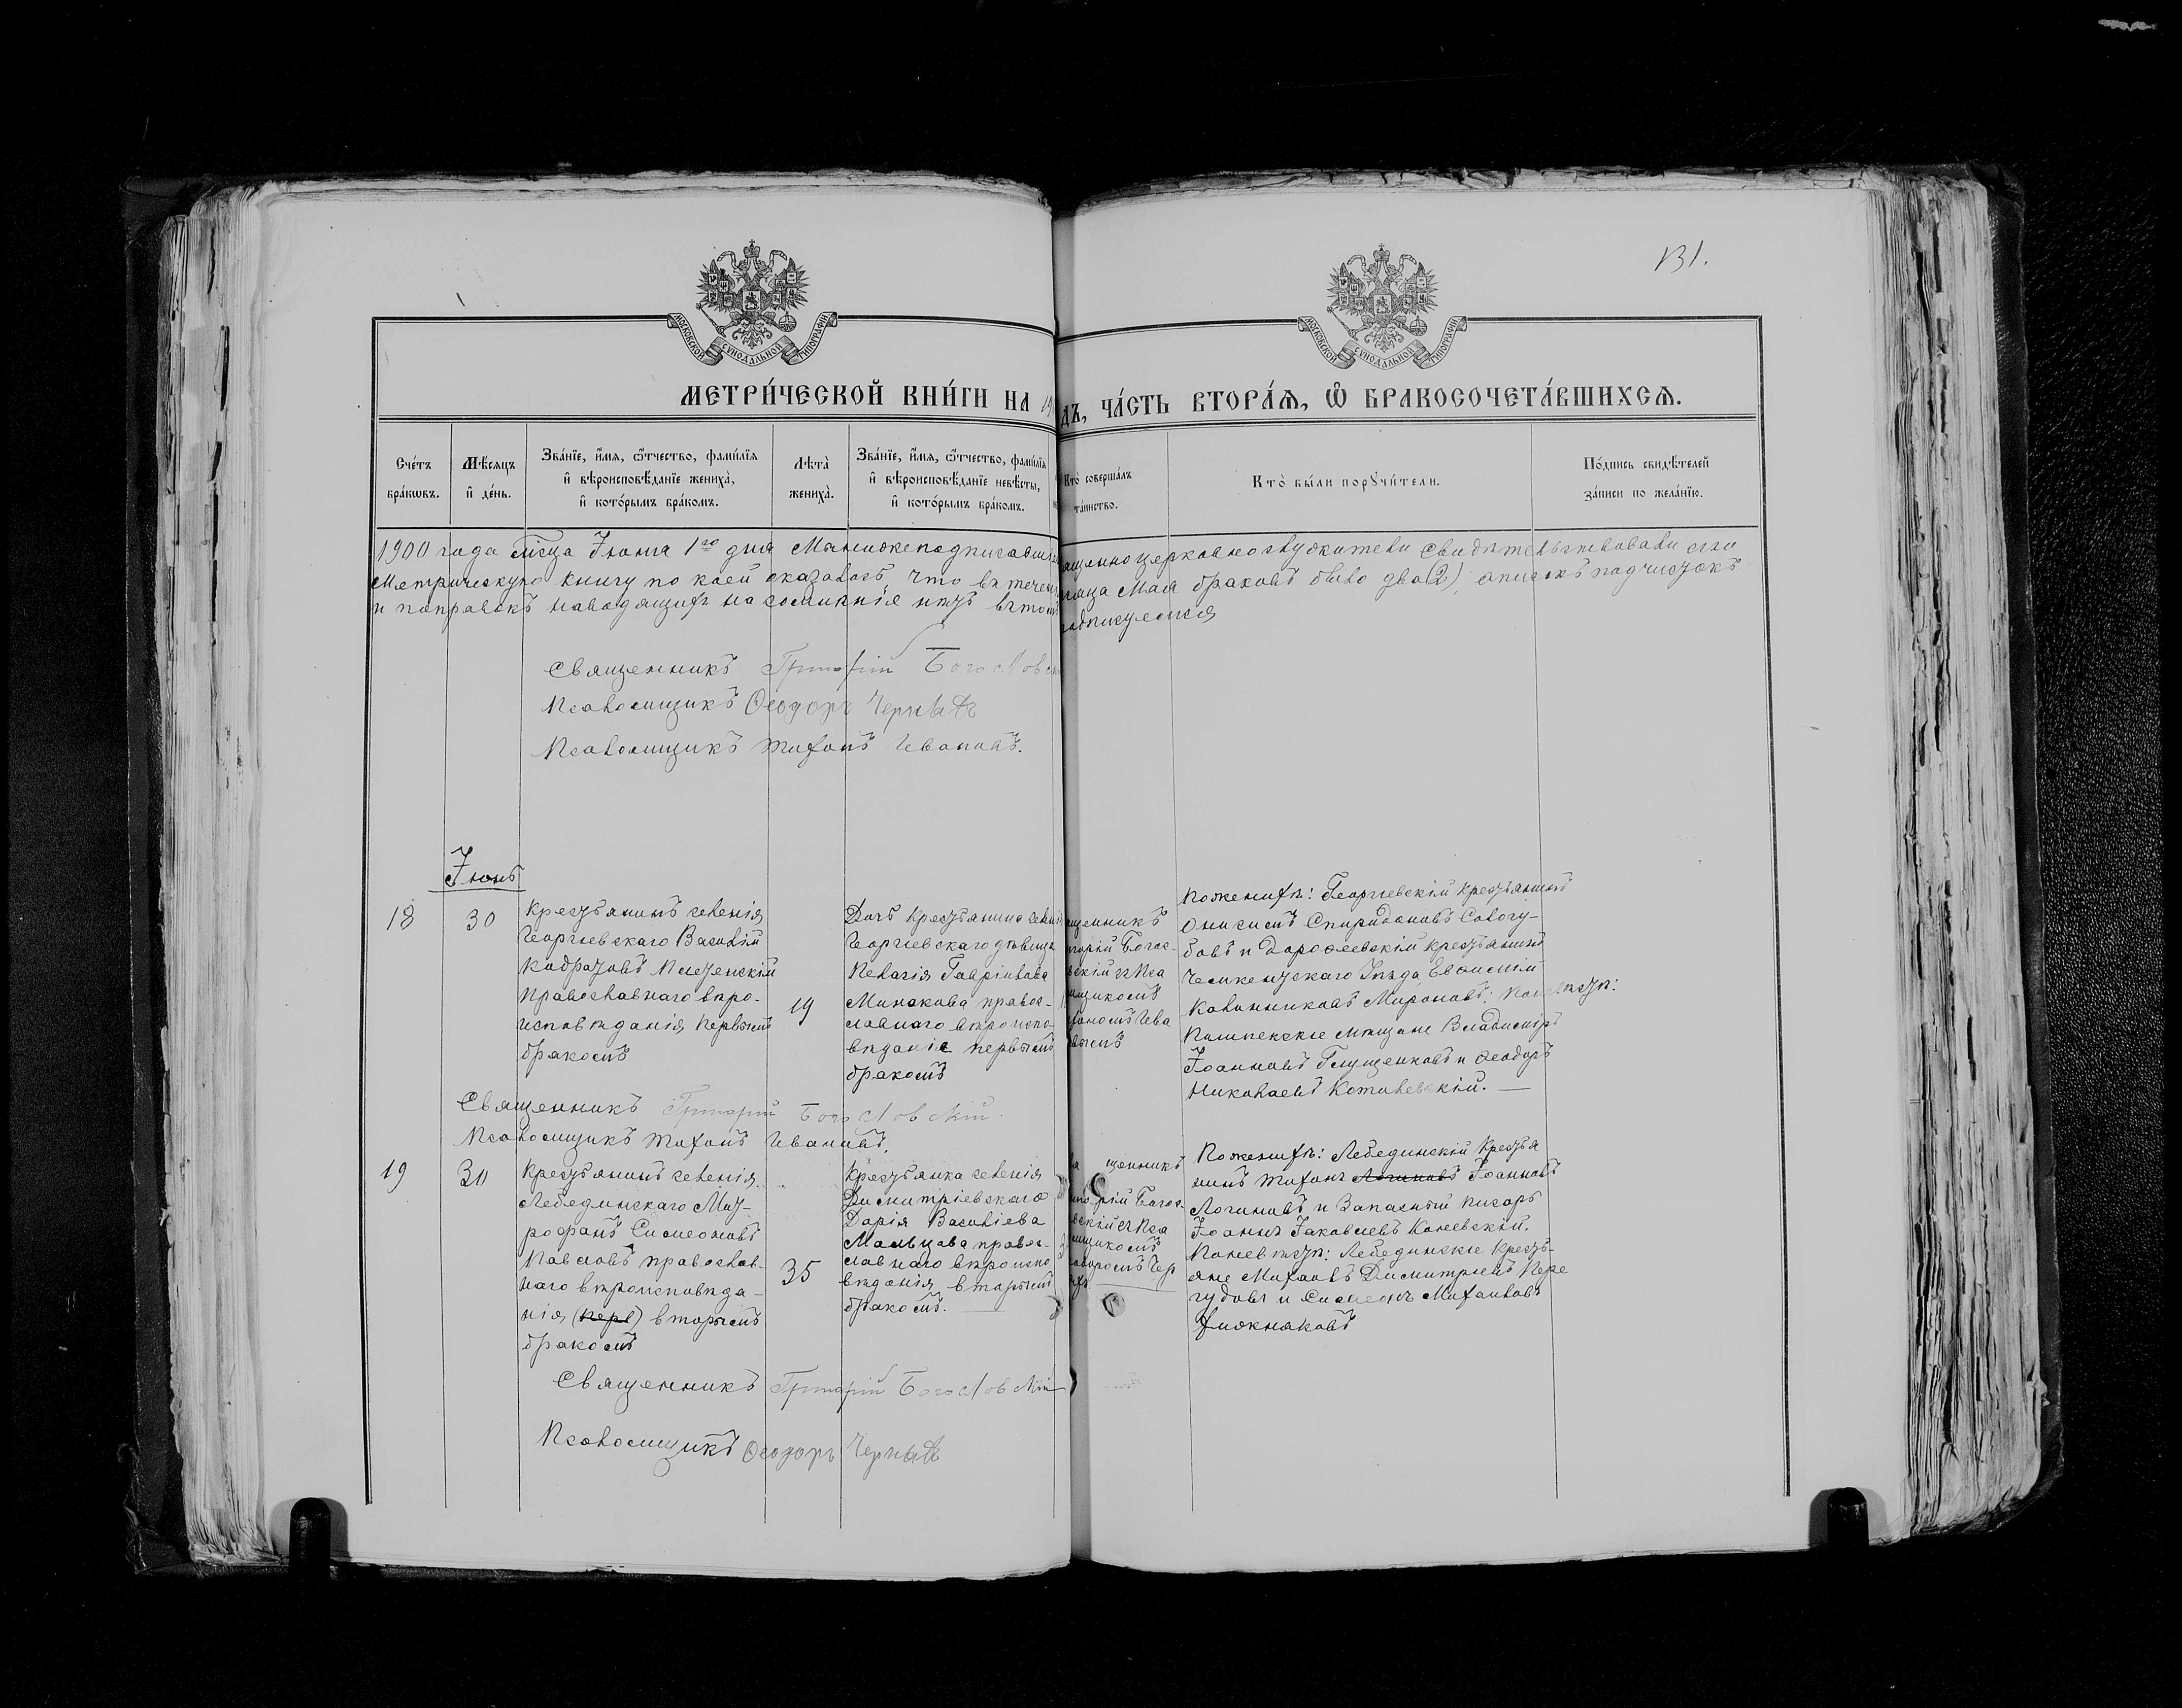 131.
МОСКОВСКОЙ СУНОДАЛЬНОЙ ТИПОГРАФІИ
МОСКОВСКОЙ СУНОДАЛЬНОЙ ТИПОГРАФІИ
МЕТРИ́ЧЕСКОЙ КНИ́ГИ НА 19
ДЪ, ЧА́СТЬ ВТОРА́Я, Ѽ БРАКОСОЧЕТА́ВШИХСЯ.
Сче́тъ бра́кѡвъ.
Мѣ́сяцъ и҆ де́нь.
Зва́нїе, и҆́мя, ѻ҆́тчество, фами́лїя и҆ вѣроисповѣ́данїе жениха̀, и҆ кото́рымъ бра́комъ.
Лѣта̀ жениха̀.
Зва́нїе, и҆́мя, ѻ҆́тчество, фами́лїя и҆ вѣроисповѣ́данїе невѣ́сты, и҆ кото́рымъ бра́комъ.
Кто̀ соверша́лъ та́инство.
Кто̀ бы́ли порꙋчи́тели.
По́дпись свидѣ́телей за́писи по жела́нїю.
1900 года мѣсяца Іюня 1го дня Мы нижеподписавші
ященноцерковнослужители свидѣтельствовали сію
Метрическую книгу по коей оказалось, что въ течені
мѣсяца Мая браковъ было два (2), описокъ подчистокъ
и поправокъ наводящихъ на сомнѣнія нѣтъ въ томъ
подписуемся
Священникъ Григорій Богословскі
Псаломщикъ Ѳеодоръ Черныхъ
Псаломщикъ Тихонъ Ивановъ.
Іюнь
18
30
Крестьянинъ селенія
Георгіевскаго Василій
православнаго вѣро-
исповѣданія первымъ
бракомъ
19
Дочь крестьянина селенія
Георгіевскаго дѣвица
Пелагія Гавріилова
Минакова правос-
лавнаго вѣроиспо-
вѣданія первымъ
бракомъ
щенникъ
горій Богос-
вскій съ Пса
мщикомъ
хономъ Ива
вымъ
По женихѣ: Георгіевскій крестьянинъ
Онисимъ Спиридоновъ Сологу-
бовъ и Дороѳеевскій крестьянинъ
Чемкентскаго Уѣзда Евѳимій
Мироновъ; По невѣстѣ:
Пишпекскіе мѣщане Владиміръ
Іоанновъ Глущенковъ и Ѳеодоръ
Николаевъ
Священникъ Григорій Богословскій.
Псаломщикъ Тихонъ Ивановъ.
19
30
Крестьянинъ селенія
Лебединскаго Мит-
рофанъ Симеоновъ
Павловъ православ-
наго вѣроисповѣда-
нія (перв) вторымъ
бракомъ
35
Крестьянка селенія
Димитріевскаго
Дарія Васильева
Мальцова правос-
лавнаго вѣроиспо-
вѣданія вторымъ
бракомъ.
щенникъ
горій Богос-
вскій съ Пса
мщикомъ
еодоромъ Чер
По женихѣ: Лебединскій крестья
нинъ Тихонъ Логиновъ Іоанновъ
Логиновъ и Запасный писарь
Іоаннъ Іаковлевъ Каневскій.
По невѣстѣ: Лебединскіе кресть-
яне Михаилъ Димитріевъ Пере
гудовъ и Симеонъ Михаиловъ
Хижняковъ
Священникъ Григорій Богословскій
Псаломщикъ Ѳеодоръ Черныхъ